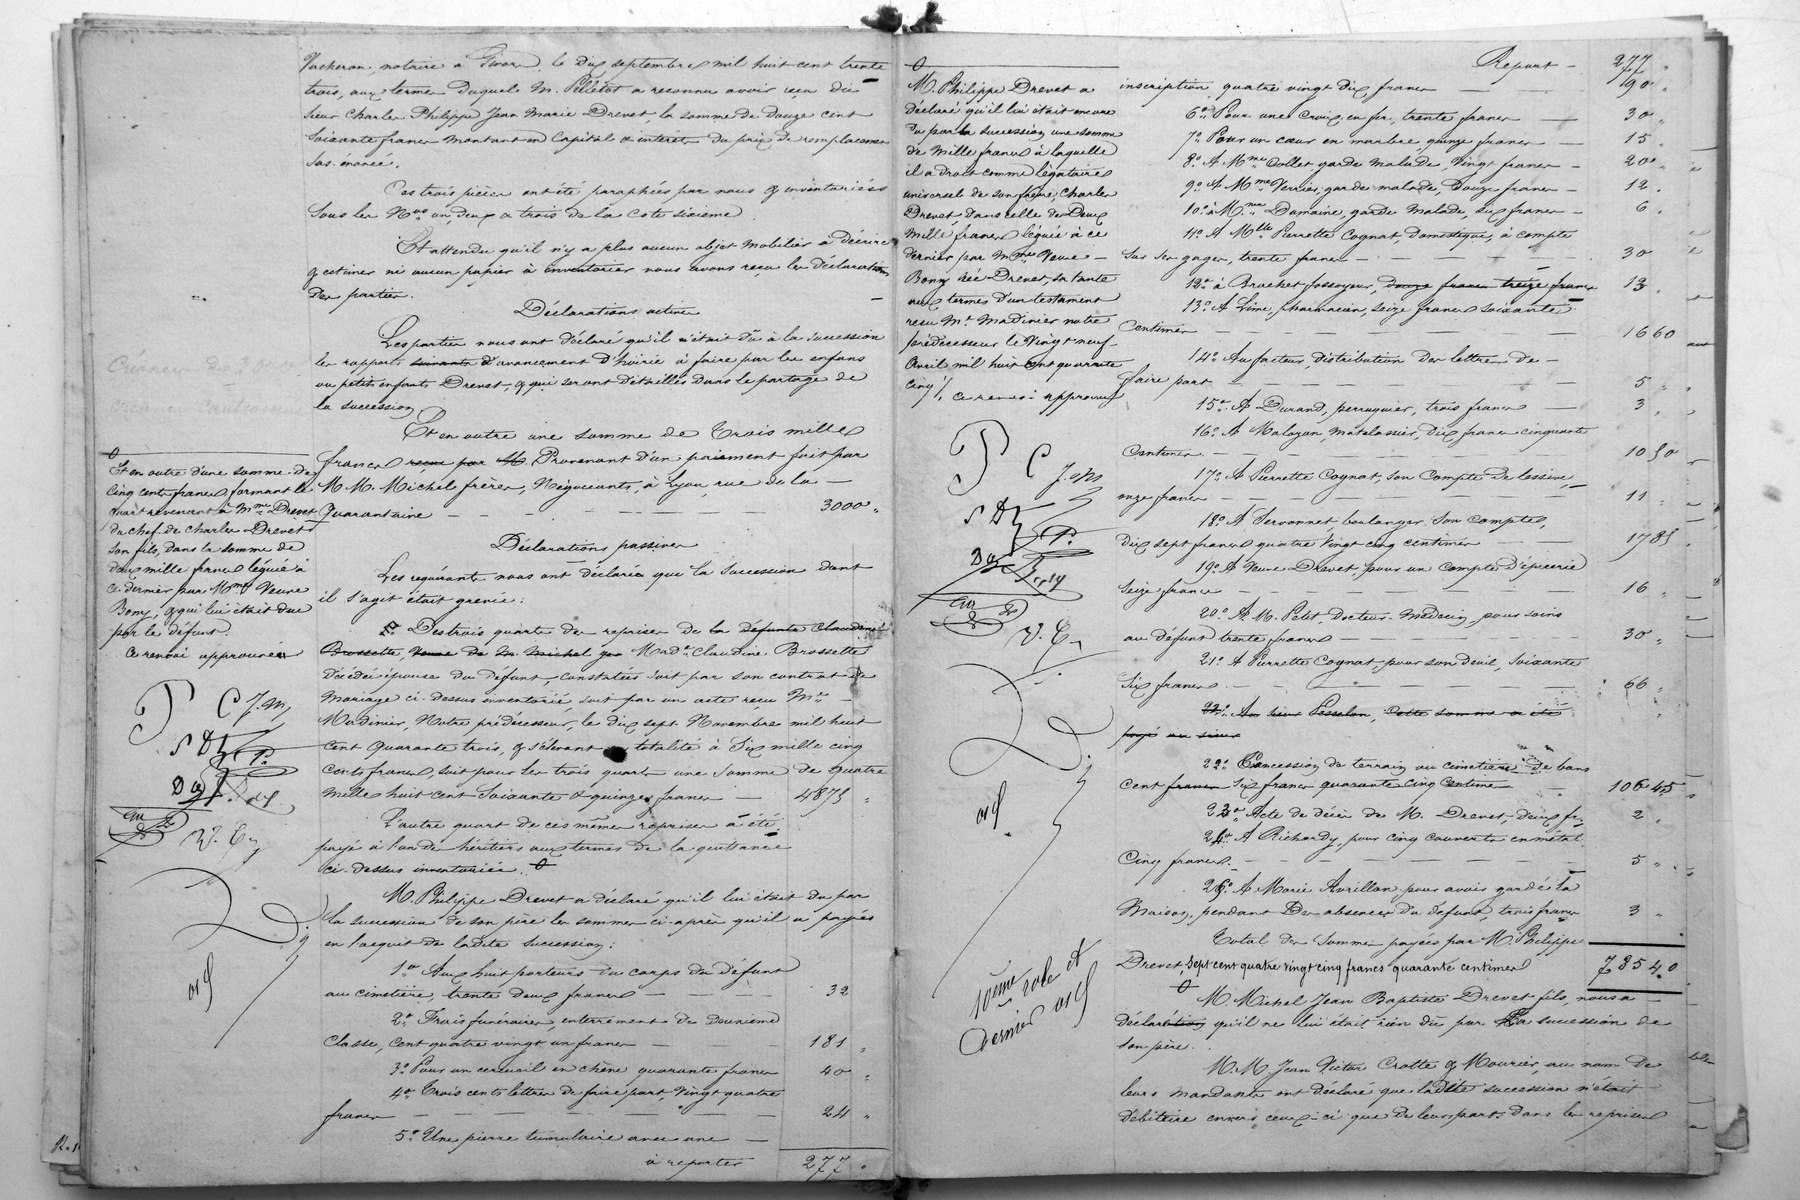 Vacheron, notaire à Givors, le dix septembre mil huit cent trente
trois, aux termes duquel M. Pelletot a reconnu avoir reçu du
Sieur Charles Philippe Jean Marie Drevet, la somme de douze cent
soixante francs montant en capital & intérêts du prix de remplacement
sus énoncé.
Ces trois pièces ont été paraphées par nous & inventoriées
sous les Nos un, deux & trois de la cote sixième
Et attendu qu'il n'y a plus aucun objet mobilier à décrire
& estimer ni aucun papier à inventorier nous avons reçu les déclarations
des parties.
Déclarations actives
Les parties nous ont déclaré qu'il n'était dû à la succession
les rapports suivants d'avancement d'hoirie à faire par les enfans
ou petits enfants Drevet, & qui seront détaillés dans le partage de
la succession
Et en outre une somme de trois mille
francs reçue par M. Provenant d'un paiement fait par
M M. Michel frères, Négociants, à Lyon, rue de la —
Quarantaine — — — — — — — 3000 "
Déclarations passives
Les requérants nous ont déclaré que la succession dont
il s'agit était grevée:
1o Des trois quarts des reprises de la défunte Claudine
Brossette, Veuve de M. Michel Mad.e Claudine Brossette
décédée épouse du défunt, constatées soit par son contrat de
mariage ci-dessus inventorié, soit par un acte reçu Me —
Madinier, Notre prédécesseur, le dix sept Novembre mil huit
cent quarante trois, & s'élevant en totalité à Six mille cinq
cents francs, soit pour les trois quarts une somme de quatre
mille huit cent soixante & quinze francs — 4875 "
L'autre quart de ces mêmes reprises a été
payé à l'un des héritiers aux termes de la quittance
ci-dessus inventoriée.
M. Philippe Drevet a déclaré qu'il lui était du par
la succession de son père les sommes ci-après qu'il a payées
en l'acquit de ladite succession:
1o Aux huit porteurs du corps du défunt
au cimetière, trente deux francs — — — 32
2o Frais funéraires, enterrement de deuxième
classe, cent quatre vingt un francs — — — 181 "
3o Pour un cercueil en chêne quarante francs 40 "
4o Trois cents lettres de faire part, Vingt quatre
francs — — — — — — — 24 "
5o Une pierre tumulaire avec une —
à reporter 277 "
Et en outre d'une somme de
Cinq cents francs formant le
quart revenant à Mme Drevet
du chef de Charles Drevet
son fils, dans la somme de
deux mille francs léguée à
ce dernier par Mme Veuve
Bony, & qui lui était due
par le défunt.
Ce renvoi approuvé
P C J.M
S D P.
V. C
M. Philippe Drevet a
déclaré qu'il lui était encore
du par la succession une somme
de mille francs à laquelle
il a droit comme légataire
universel de son frère, Charles
Drevet, dans celle de Deux
mille francs léguée à ce
dernier par Mme Veuve —
Bony née Drevet, sa tante
aux termes d'un testament
reçu Me Madinier notre
prédécesseur le vingt neuf
Avril mil huit cent quarante
cinq /. ce renvoi approuvé
P C J.M
S D P.
V. C
10eme role et
dernier
Report — 277 "
inscription, quatre vingt dix francs — 90 "
6o Pour une Croix en fer, trente francs — 30 "
7o Pour un cœur en marbre quinze francs — 15 "
8o A Mme Collet garde malade, Vingt francs — 20 "
9o A Mme Verrier, garde malade, Douze francs — 12 "
10o à Mme Domaine, garde malade, six francs — 6 "
11o A Mlle Pierrette Cognat, Domestique, à compte
sur ses gages, trente francs — — — — 30 "
12o à Brachet fossoyeur, douze francs treize francs 13 "
13o A Lime, pharmacien, seize francs soixante
Centimes — — — — — — — 16 60
14o Au facteur, distribution des lettres de —
faire part — — — — — — — 5 "
15o A Durand, perruquier, trois francs — 3 "
16o A Maloyon, matelassier, dix francs cinquante
Centimes — — — — — — 10 50
17o A Pierrette Cognat, son Compte de lessive,
onze francs — — — — — — 11 "
18o A Servonnet, boulanger, Son compte,
dix sept francs quatre vingt cinq centimes — — 17 85
19o A Veuve Drevet, pour un Compte d'épicerie
Seize francs — — — — — — 16 "
20o A M. Petit, Docteur-Médecin, pour soins
au défunt trente francs — — — — — 30 "
21o A Pierrette Cognat, pour son deuil, soixante
six francs — — — — — — 66 "
22o Au sieur Pesselon, Cette somme a été
payé au sieur
22o Concession de terrain au cimetière de bans
Cent francs Six francs quarante cinq Centimes — 106 45
23o Acte de décès de M. Drevet, deux fr. 2 "
24o A Richardy, pour cinq couverts en métal
Cinq francs. — — — — — — 5 "
25o A Marie Avrillon pour avoir gardé la
maison, pendant des absences du défunt, trois francs 3 "
Total des sommes payées par M. Philippe
Drevet, sept cent quatre vingt cinq francs quarante centimes 785 40
M. Michel Jean Baptiste Drevet fils, nous a —
déclaré qu'il ne lui était rien dû par la succession de
son père.
M.M. Jean Victor Crotte & Mourier, au nom de
leurs mandants ont déclaré que ladite succession n'était
débitrice envers ceux-ci que de leurs parts dans les reprises